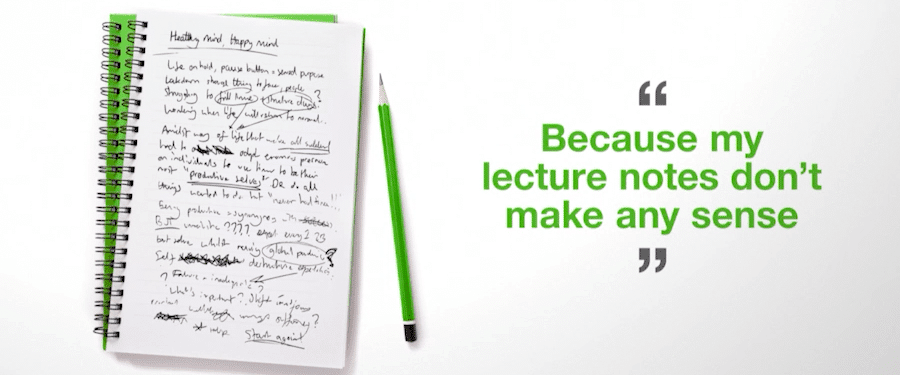 Healthy mind, Happy mind
Life on hold, pause button = sensed purpose
Lockdown strange thing to face, people ?
Struggling to fill time, structure days.
Wondering when life will return to normal.
Amidst way of life that we all suddenly
had to adopt enormous pressure
on individuals to use time to be their
most "productive selves" OR do all
things wanted to do but "never had time"!!!
Being productive = synonymous
BJT unrealistic ???? expect every
but solve whilst reeling global pandemic
Self destructive expectation
? Failure = inadequate ?
"What's important"? Shift
wellbeing ?
* help Start again
“
Because my
lecture notes don’t
make any sense
”